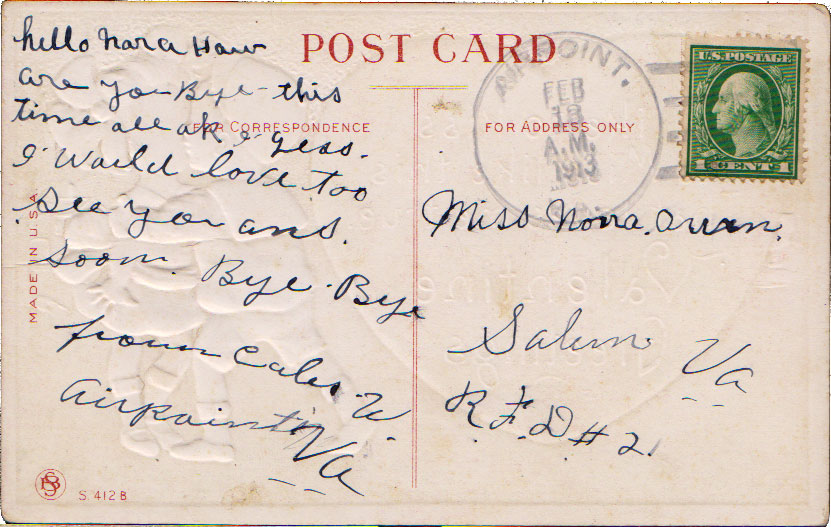 POST CARD
hello nara Haw
are you Bye this
time all ok i gess.
FOR CORRESPONDENCE
I Would love too
See you ans.
soon. Bye-Bye
from Caleb W
airpoint Va
MADE IN U.S.A.
S. 412 B
AIRPOINT.
FEB
A.M.
1913
U.S. POSTAGE
1 CENT 1
FOR ADDRESS ONLY
Miss Nora.
Salem Va
R.F.D # 2.